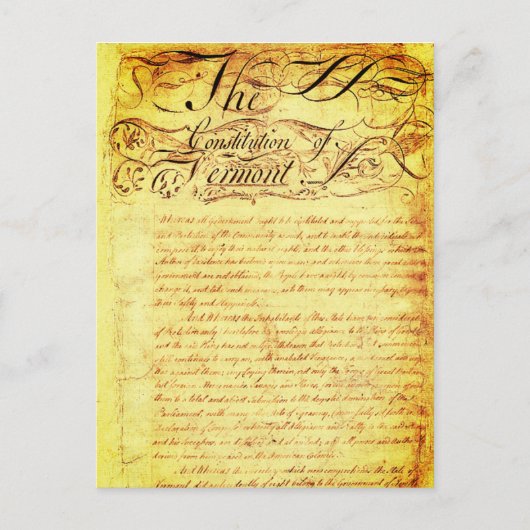 The
Constitution of
Vermont
Whereas all Government ought to be instituted and supported for the
and Protection of the Community as such, and to enable the individuals who
compose it to enjoy their natural rights, and the other blessings which the
Author of Existence has bestowed upon man; and whenever those great ends of
government are not obtained, the People have a right, by common consent
change it, and take such measures as to them may appear necessary
their Safety and Happiness.
And Whereas the Inhabitants of this State have (in consideration
of Protection only) heretofore acknowledged allegiance to the King of Great
and the said King has not only withdrawn that Protection, but commenced
still continues to carry on, with unabated Vengeance, a most cruel and
War against them; employing therein, not only the Troops of Great Britain
but foreign Mercenaries, Savages and Slaves, for the avowed purpose of
them to a total and abject Submission to the despotic domination of the
Parliament, with many other Acts of Tyranny, (more fully set forth in the
Declaration of Congress) whereby all allegiance and Fealty to the said King
and his Successors, are dissolved and at an end; and all power and authority
derived from him ceased in the American Colonies.
And Whereas the Territory which now comprehends the State of
Vermont did antecedently of right belong to the Government of